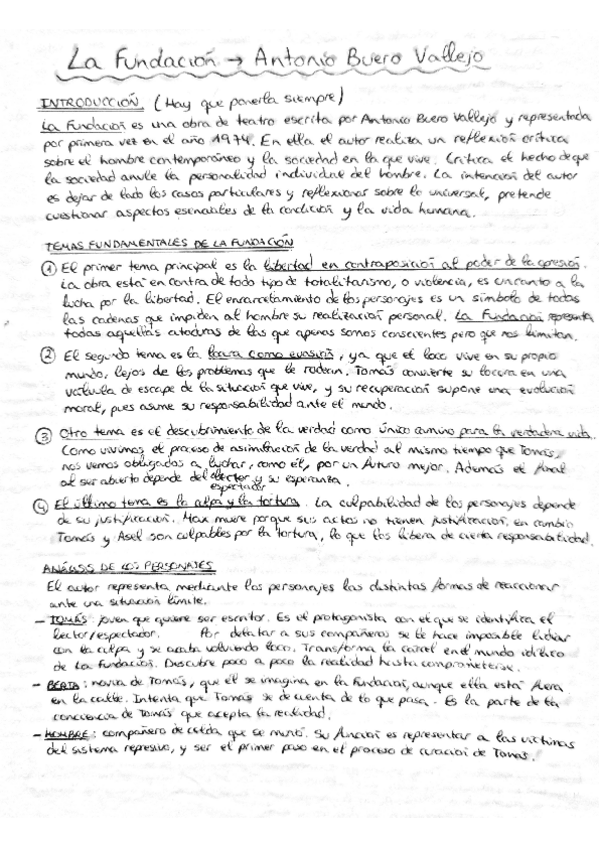 La Fundación → Antonio Buero Vallejo
INTRODUCCIÓN (Hay que ponerla siempre)
La Fundación es una obra de teatro escrita por Antonio Buero Vallejo y representada
por primera vez en el año 1974. En ella el autor realiza un reflexión crítica
sobre el hombre contemporáneo y la sociedad en la que vive. Critica el hecho de que
la sociedad anule la personalidad individual del hombre. La intención del autor
es dejar de lado los casos particulares y reflexionar sobre lo universal, pretende
cuestionar aspectos esenciales de la condición y la vida humana.
TEMAS FUNDAMENTALES DE LA FUNDACIÓN
① El primer tema principal es la libertad en contraposición al poder de la opresión.
La obra está en contra de todo tipo de totalitarismo, o violencia, es un canto a la
lucha por la libertad. El encarcelamiento de los personajes es un símbolo de todas
las cadenas que impiden al hombre su realización personal. La Fundación representa
todas aquellas ataduras de las que apenas somos conscientes pero que nos limitan.
② El segundo tema es la locura como evasión, ya que el loco vive en su propio
mundo, lejos de los problemas que le rodean. Tomás convierte su locura en una
válvula de escape de la situación que vive, y su recuperación supone una evolución
moral, pues asume su responsabilidad ante el mundo.
③ Otro tema es el descubrimiento de la verdad como único camino para la verdadera vida.
Como vivimos el proceso de asimilación de la verdad al mismo tiempo que Tomás,
nos vemos obligados a luchar, como él, por un futuro mejor. Además el final
al ser abierto depende del lector y su esperanza.
espectador
④ El último tema es la culpa y la tortura. La culpabilidad de los personajes depende
de su justificación. Max muere porque sus actos no tienen justificación, en cambio
Tomás y Asel son culpables por la tortura, lo que los libera de cierta responsabilidad.
ANÁLISIS DE LOS PERSONAJES
El autor representa mediante los personajes las distintas formas de reaccionar
ante una situación límite.
- TOMÁS: joven que quiere ser escritor. Es el protagonista con el que se identifica el
lector/espectador. Por delatar a sus compañeros se le hace imposible lidiar
con la culpa y se acaba volviendo loco. Transforma la cárcel en el mundo idílico
de La Fundación. Descubre poco a poco la realidad hasta comprometerse.
- BERTA: novia de Tomás, que él se imagina en la Fundación, aunque ella está fuera
en la calle. Intenta que Tomás se dé cuenta de lo que pasa. Es la parte de la
conciencia de Tomás que acepta la realidad.
- HOMBRE: compañero de celda que se murió. Su función es representar a las víctimas
del sistema represivo, y ser el primer paso en el proceso de curación de Tomás.